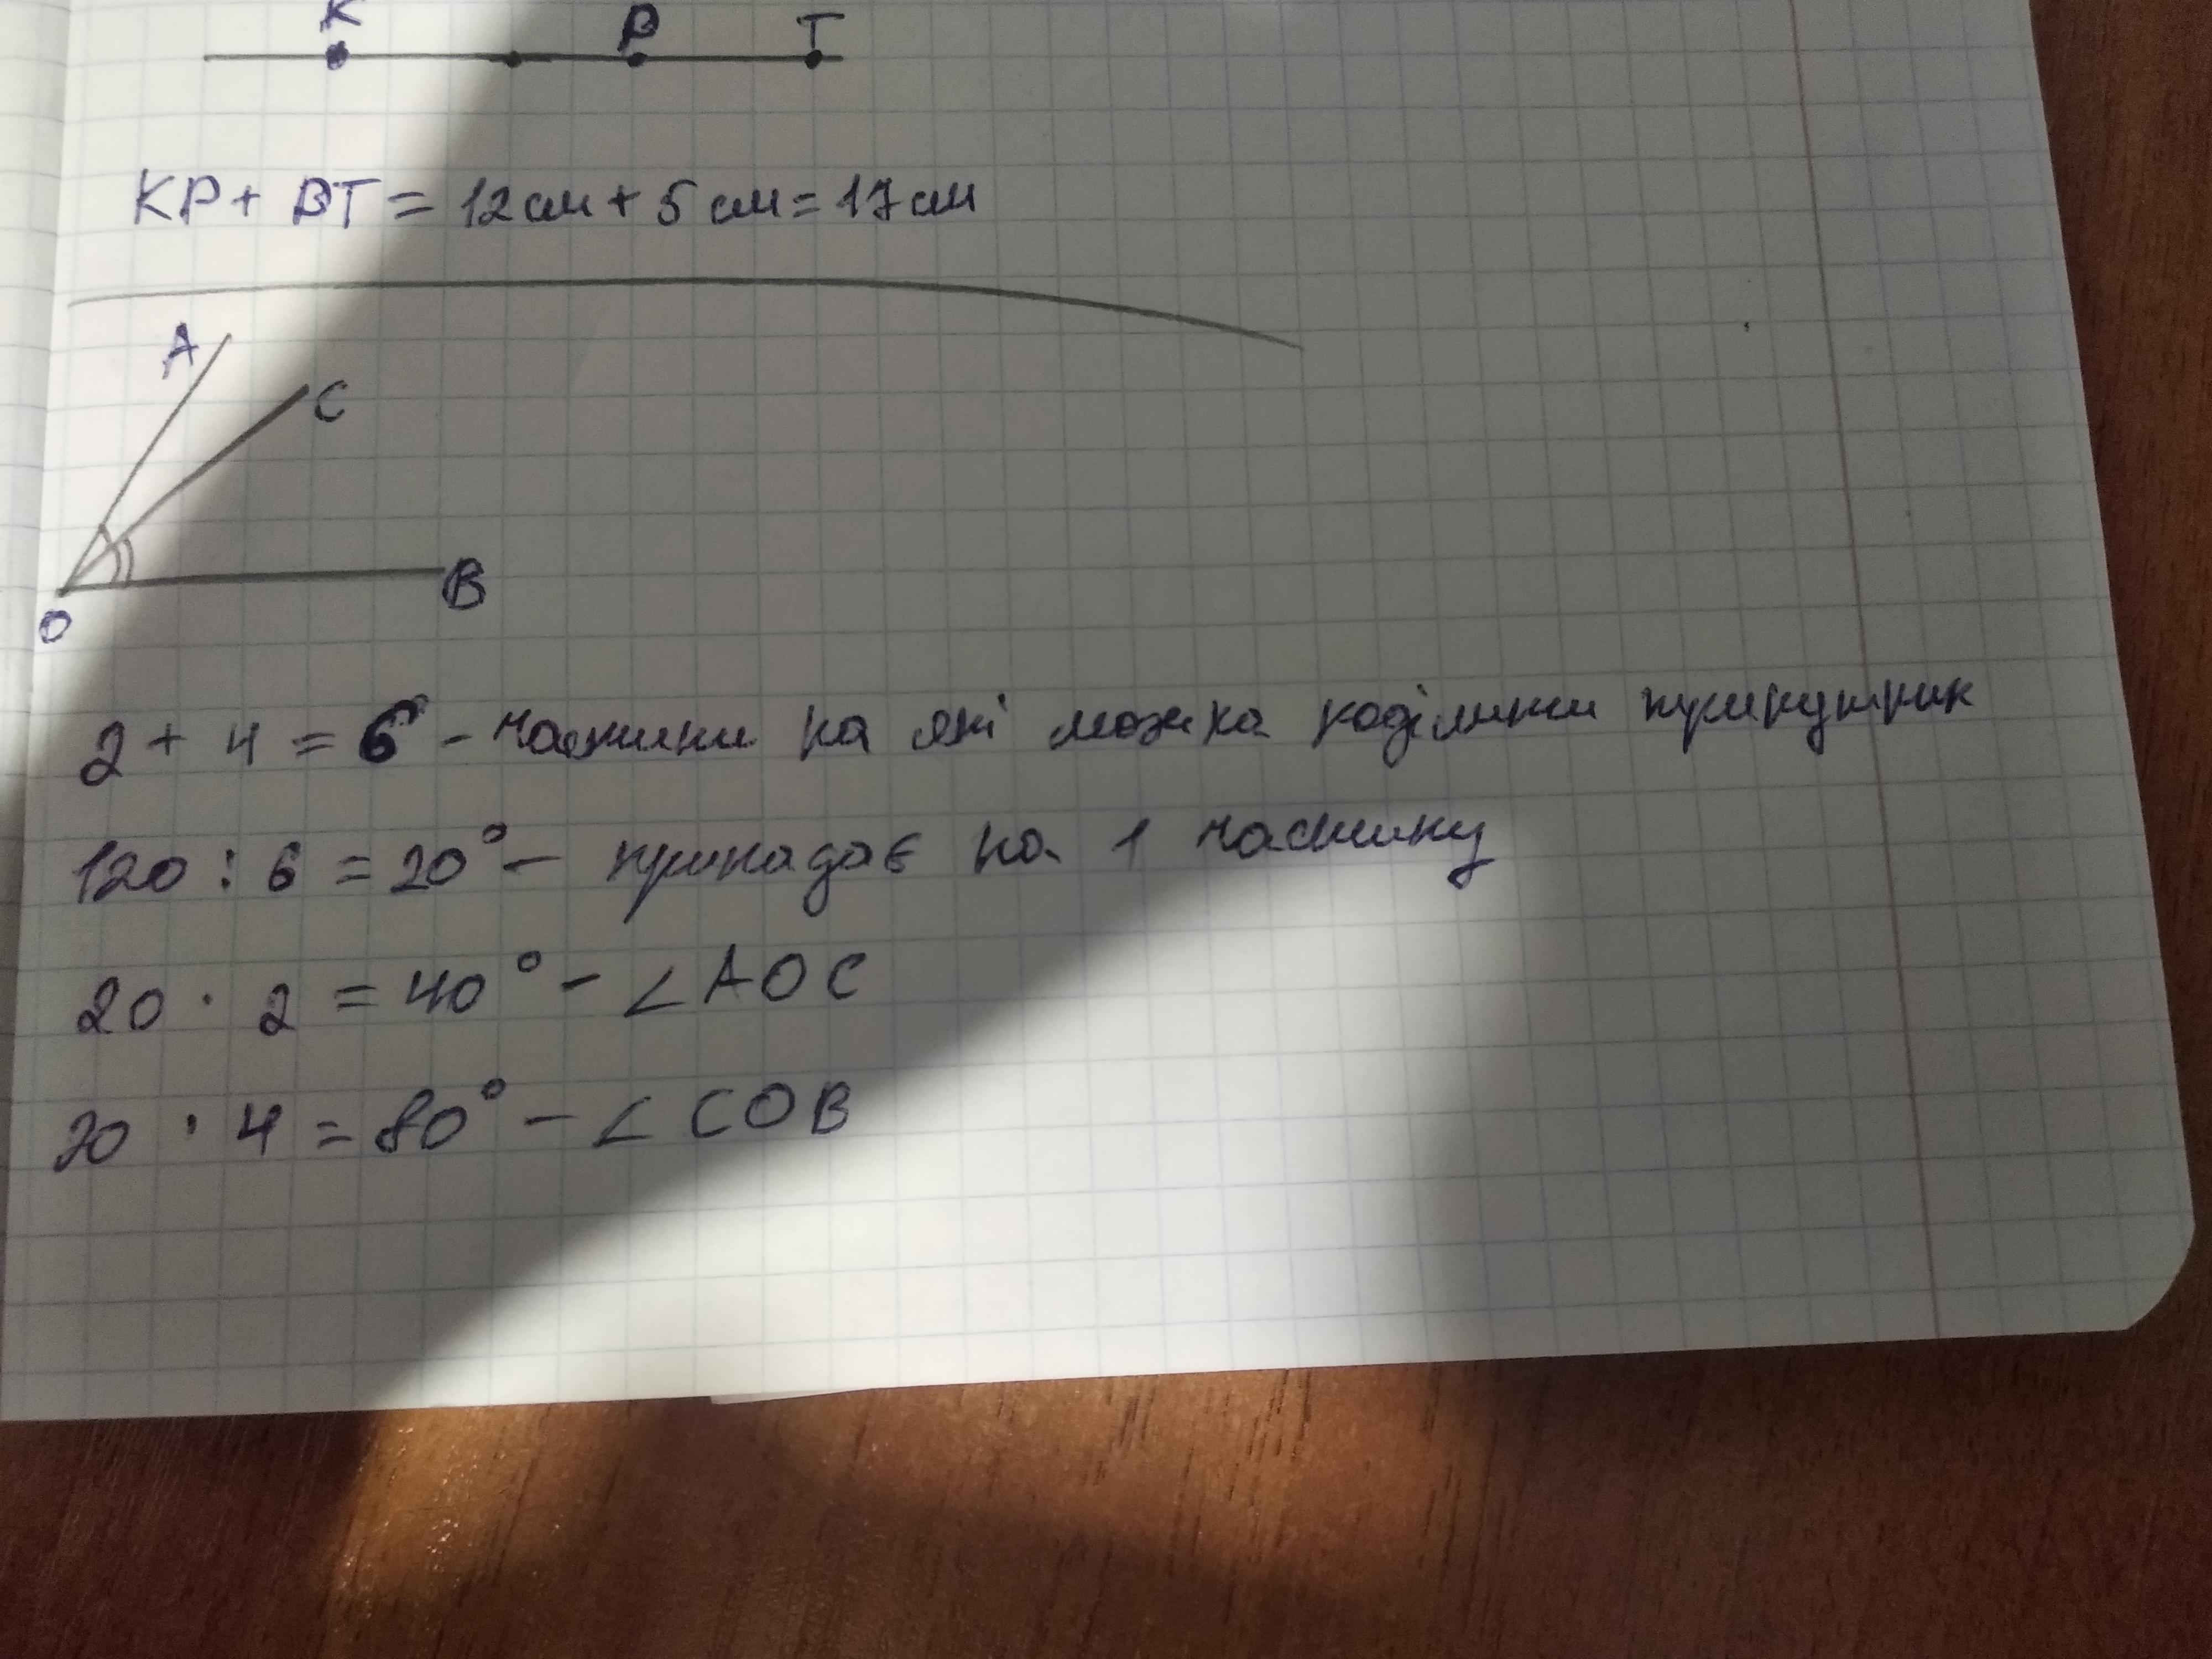 K B T
KP + BT = 12 см + 5 см = 17 см
A
C
B
O
2 + 4 = 6 - частини на які можна поділити трикутник
120 : 6 = 20° - припадає на 1 частину
20 · 2 = 40° - ∠AOC
20 · 4 = 80° - ∠COB